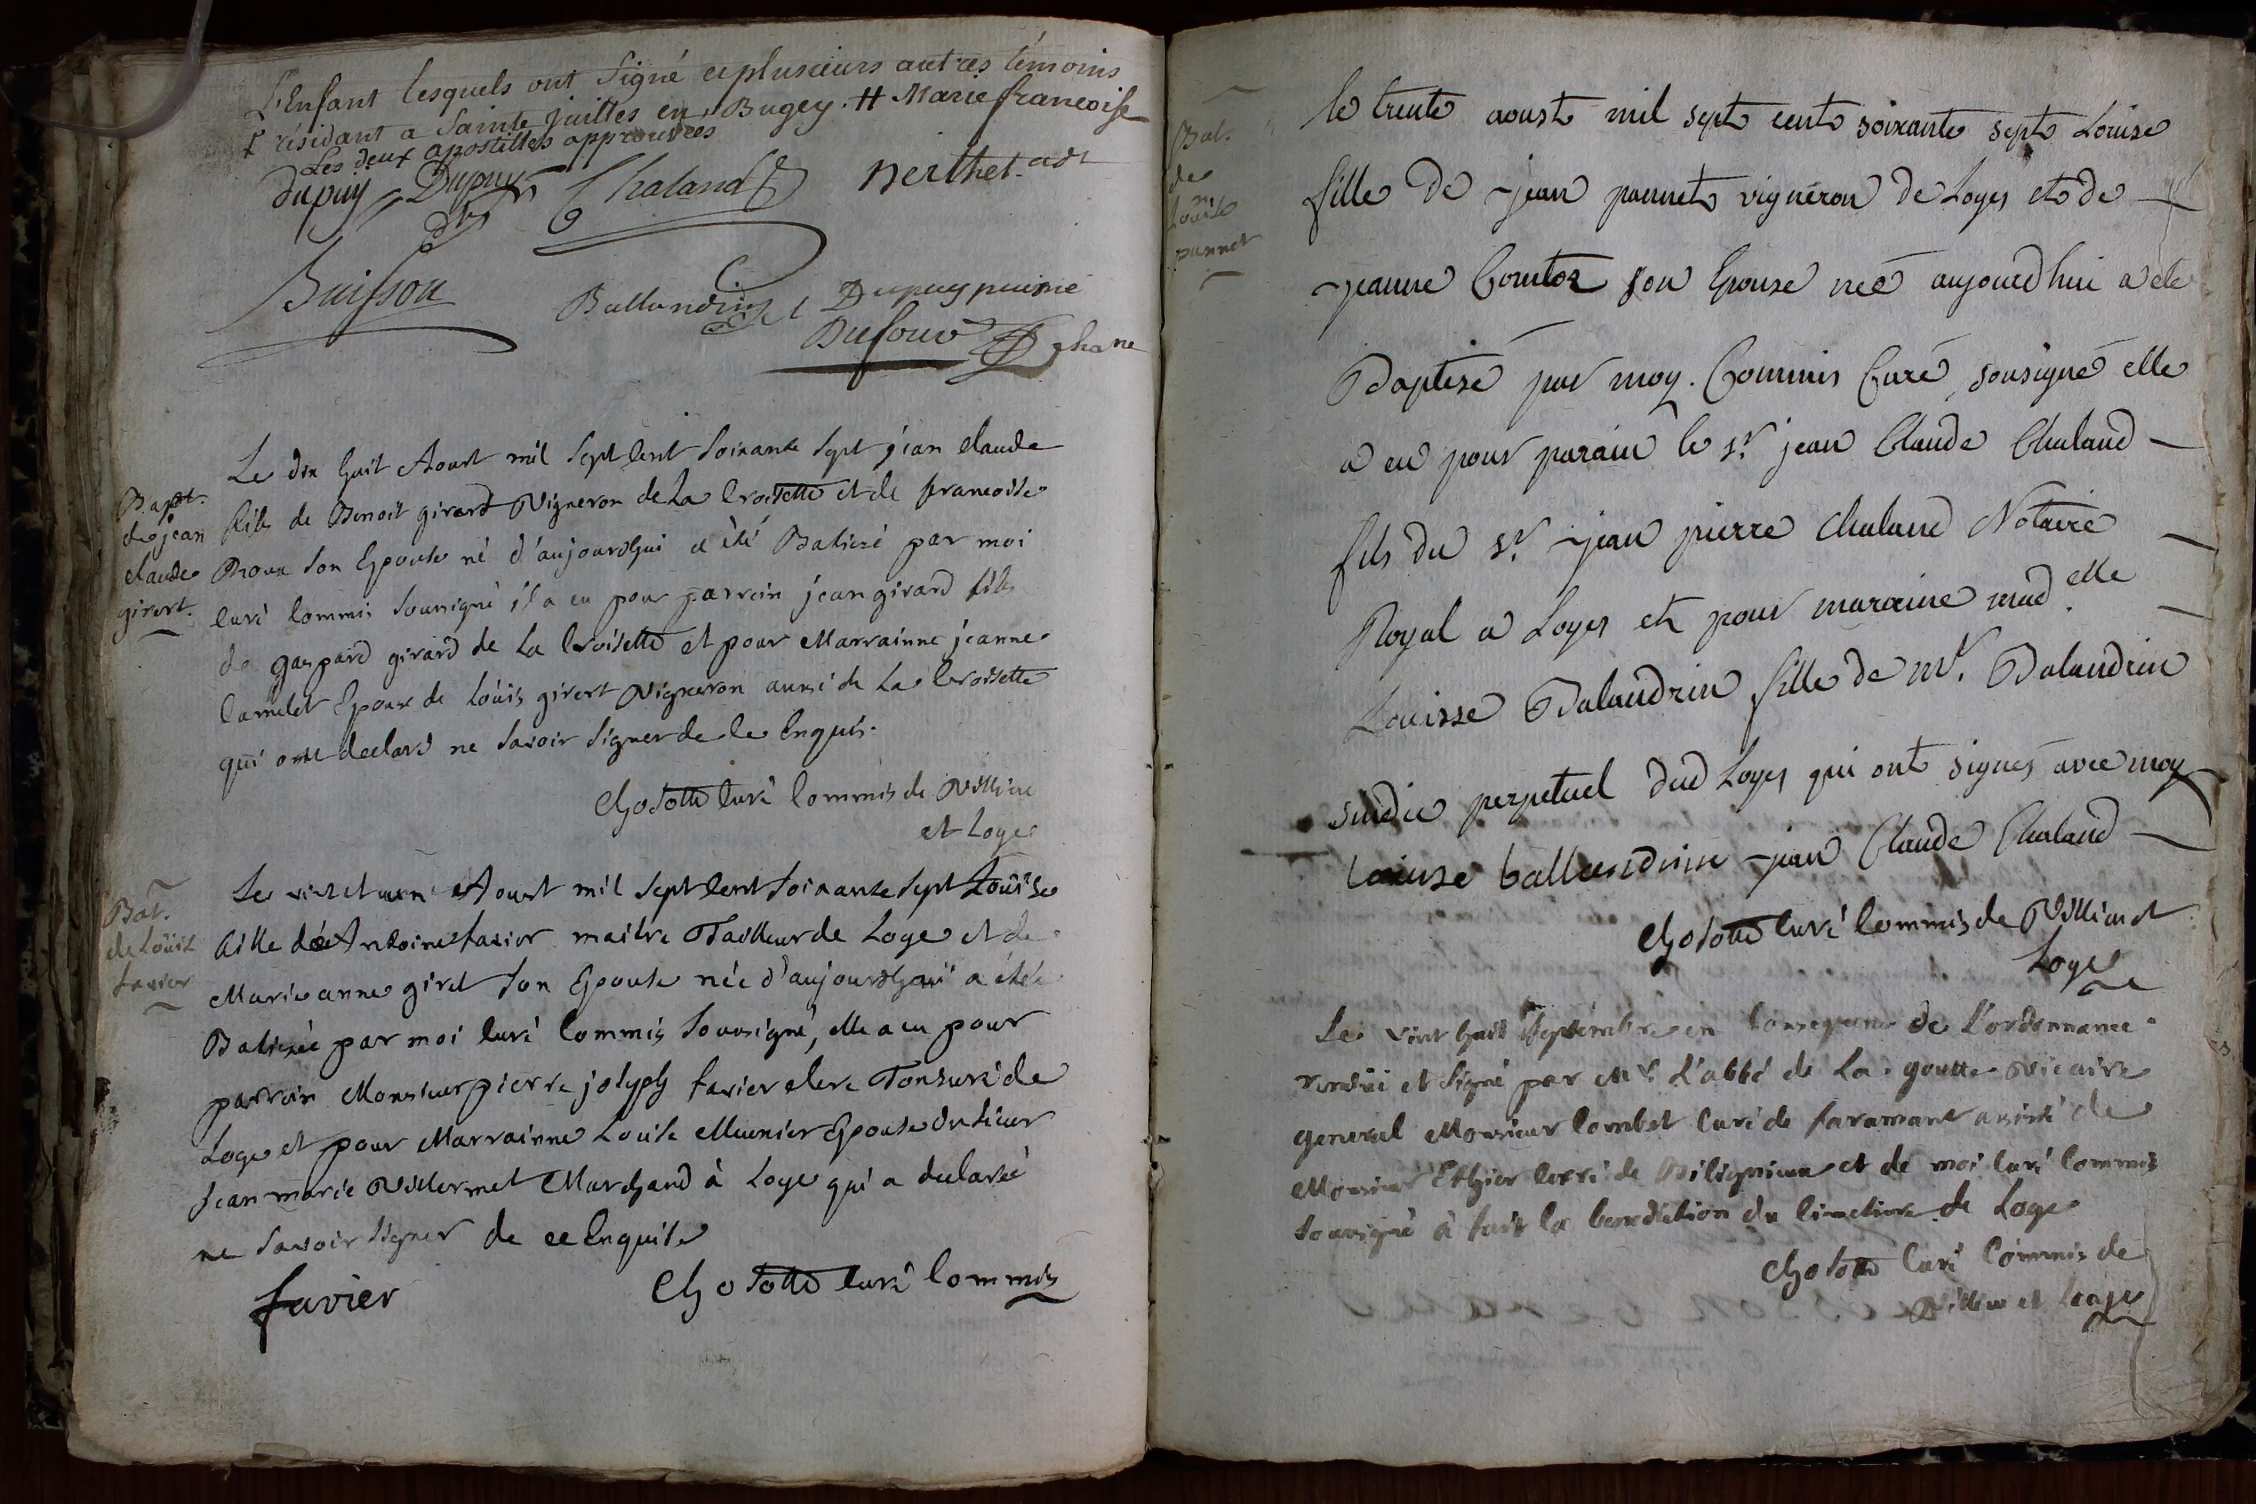 L'Enfant lesquels ont signé et plusieurs autres témoins
† résidant a Sainte juilles en Bugey. # Marie francoise
Les deux apostilles approuvées
dupuy Dupuy Chaland Nerthet
Buisson Ballandrin Dupuy puiné
Dufour
Bapt.
de jean
claude
girert.
Le dix huit Aoust mil sept Cent soixante sept jean claude
fils de Benoit girard Vigneron de La Croisette et de francoise
Roux son Epouse né d'aujourdhui a été Batisé par moi
Curé Commis soussigné il a eu pour parrain jean girard fils
de gaspard girard de La Croisette et pour Marrainne jeanne
Camelet Epouse de Loüis girert Vigneron aussi de La Croisette
qui ont declaré ne savoir signer de ce Enquis.
Chosotte Curé Commis de Villieu
et Loye
Bat.
de Loüise
favier
Le vint et un Aoust mil sept Cent soixante sept Loüise
fille de Antoine favier maitre Tailleur de Loye et de
Marie anne giret son Epouse née d'aujourdhui a étée
Batisée par moi Curé Commis soussigné, elle a eu pour
parrain Monsieur pierre joseph favier clerc Tonsuré de
Loye et pour Marrainne Louise Meunier Epouse du sieur
Jean marie Villermet Marchand à Loye qui a declaré
ne savoir signer de ce Enquise
favier Chosotte Curé Commis
Bat.
de
Louise
pannet
le trente aoust mil sept cent soixante sept Louise
fille de jean pannet vigneron de Loyes et de
jeanne Comtoz son Epouse née aujourdhui a ete
Baptisé par moy. Commis Curé sousigné elle
a eu pour parain le sr. jean Claude Chaland
fils du sr. jean pierre Chaland Notaire
Royal a Loyes et pour maraine madelle
Louisse Balandrin fille de mr. Balandrin
sindic perpetuel dud Loyes qui ont signés avec moy
Louise ballandrin jean Claude Chaland
Chosotte Curé Commis de Villieu et
Loye
Le vint huit septembre en Consequence de L'ordonnance
rendüe et signé par Mr. L'abbé de La goutte Vicaire
general Monsieur Combet Curé de faramant assisté de
Monsieur Ethier Curé de Biligneux et de moi Curé Commis
soussigné à fait la benediction du Cimetiere de Loye
Chosotte Curé Commis de
Villieu et Loye